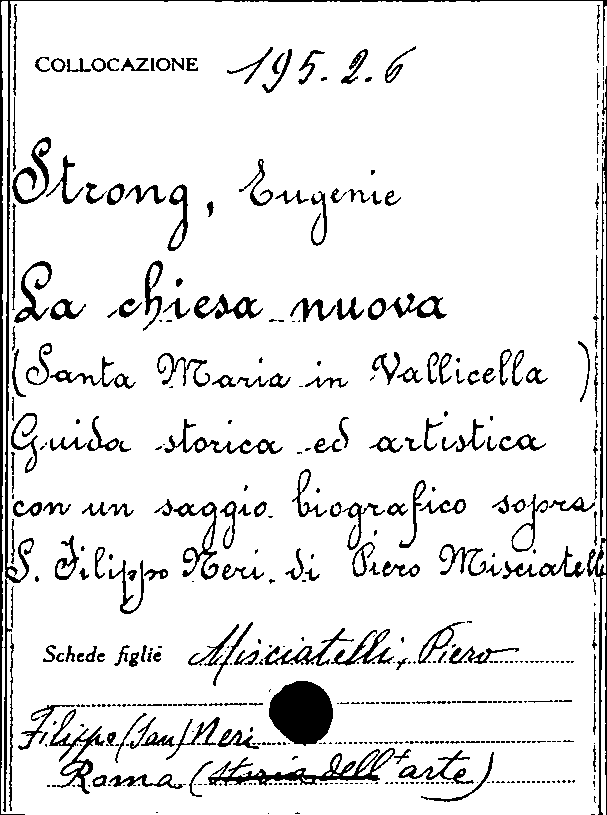 COLLOCAZIONE 195.2.6
Strong, Eugenie
La chiesa nuova
(Santa Maria in Vallicella )
Guida storica ed artistica
con un saggio biografico sopra
S. Filippo Neri di Piero Misciatelli
Schede figlie Misciatelli, Piero
Filippo (San) Neri
Roma (storia dell'arte)